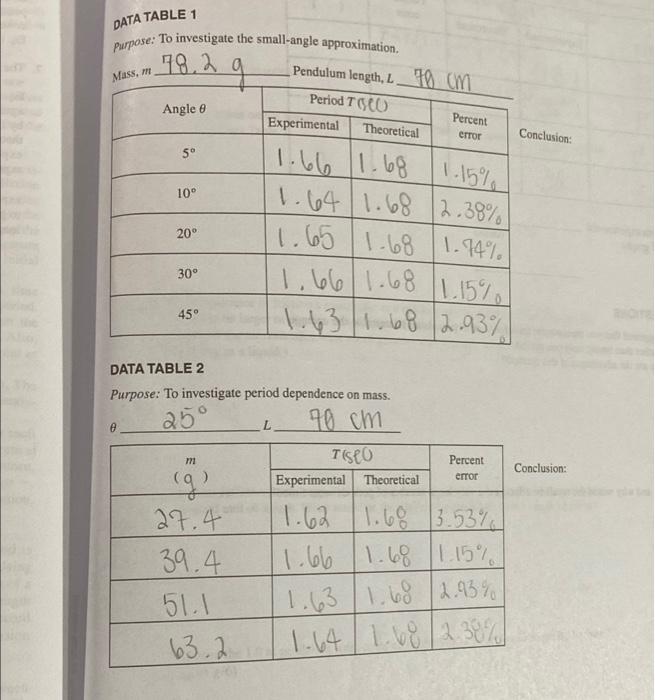 DATA TABLE 1
Purpose: To investigate the small-angle approximation.
Mass, m 78.2 g Pendulum length, L 70 cm
Angle θ Period T (sec) Percent error Conclusion:
Experimental Theoretical
5° 1.66 1.68 1.15%
10° 1.64 1.68 2.38%
20° 1.65 1.68 1.74%
30° 1.66 1.68 1.15%
45° 1.63 1.68 2.93%
DATA TABLE 2
Purpose: To investigate period dependence on mass.
θ 25° L 70 cm
m (g) T (sec) Percent error Conclusion:
Experimental Theoretical
27.4 1.62 1.68 3.53%
39.4 1.66 1.68 1.15%
51.1 1.63 1.68 2.93%
63.2 1.64 1.68 2.38%